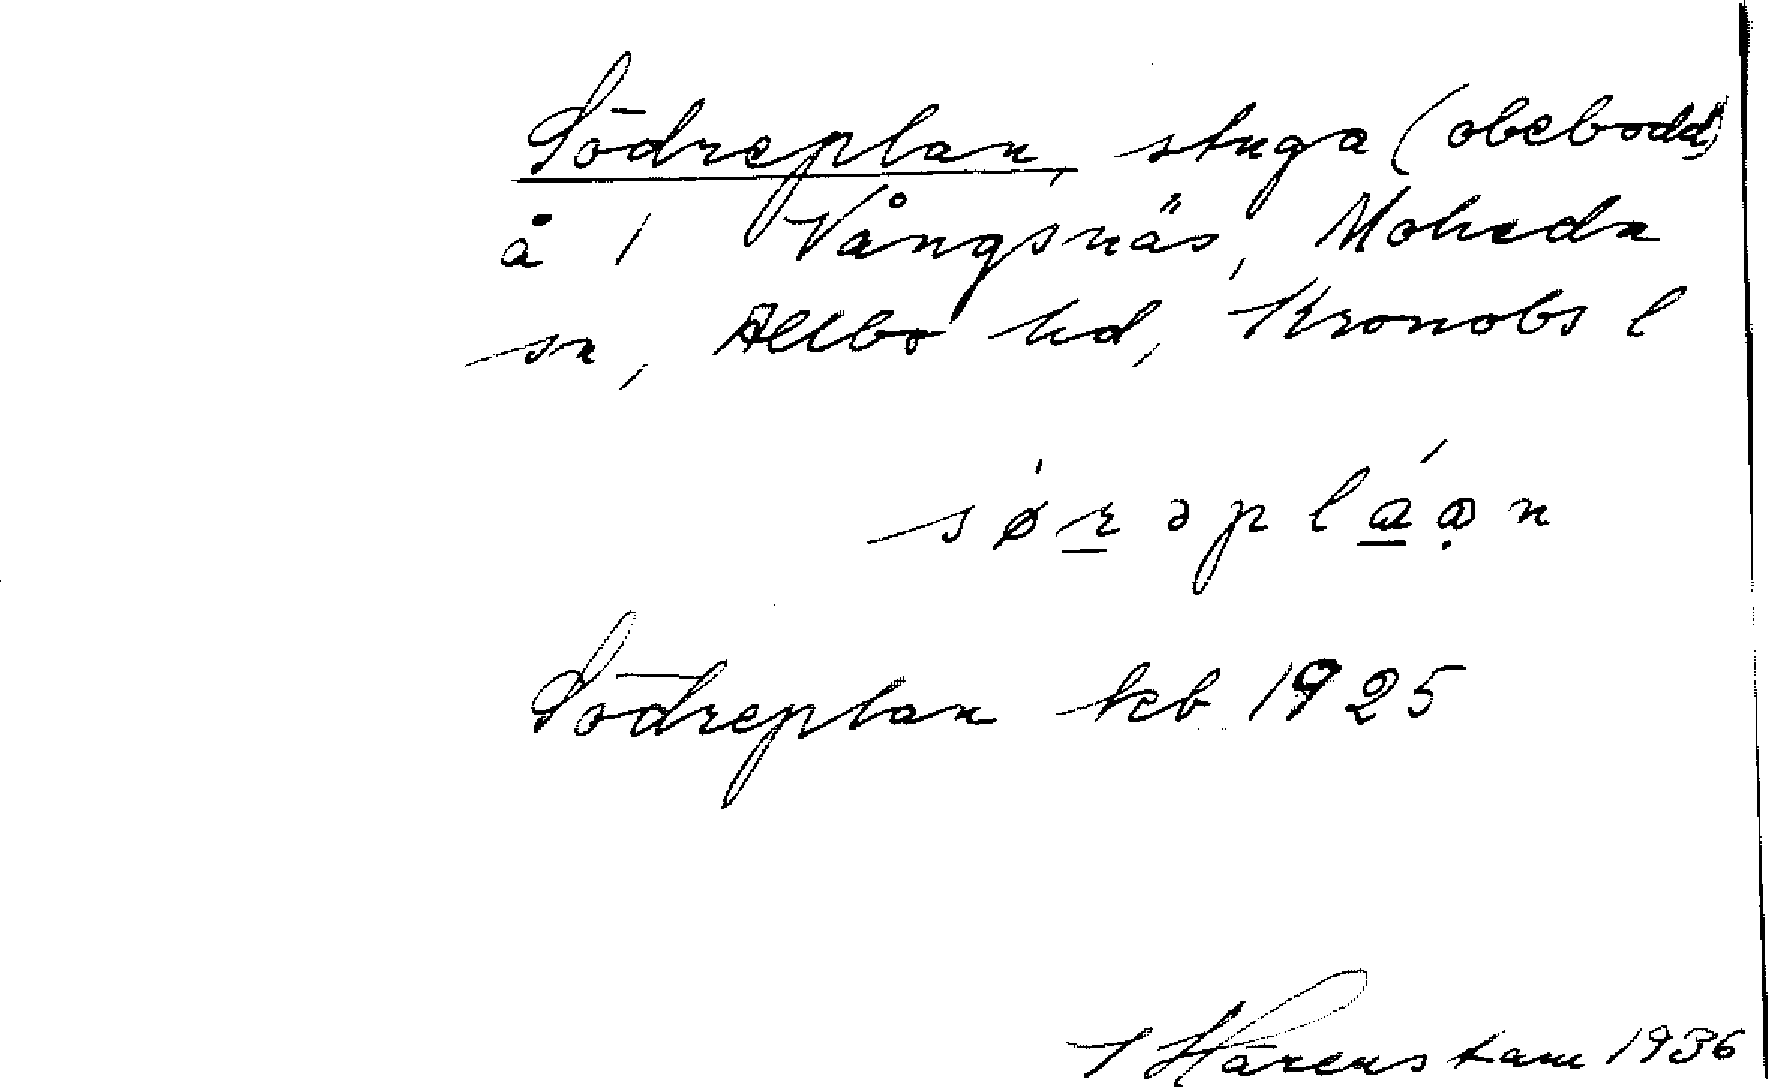 Södreplan, stuga (obebodd)
å 1 Vångsnäs, Moheda
sn, Allbo hd, Kronobs l
sǿrəpláan
Södreplan kb 1925
Härenstam 1936